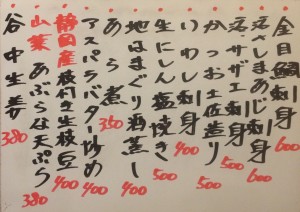 金目鯛刺身 600
活さしまあじ刺身 600
活サザエ刺身 500
かつお土佐造り 500
いわし刺身 400
生にしん塩焼き 500
地はまぐり酒蒸し 400
あら煮 350
アスパラバター炒め 400
静岡産枝付き生枝豆 400
山菜あぶらな天ぷら 380
谷中生姜 380